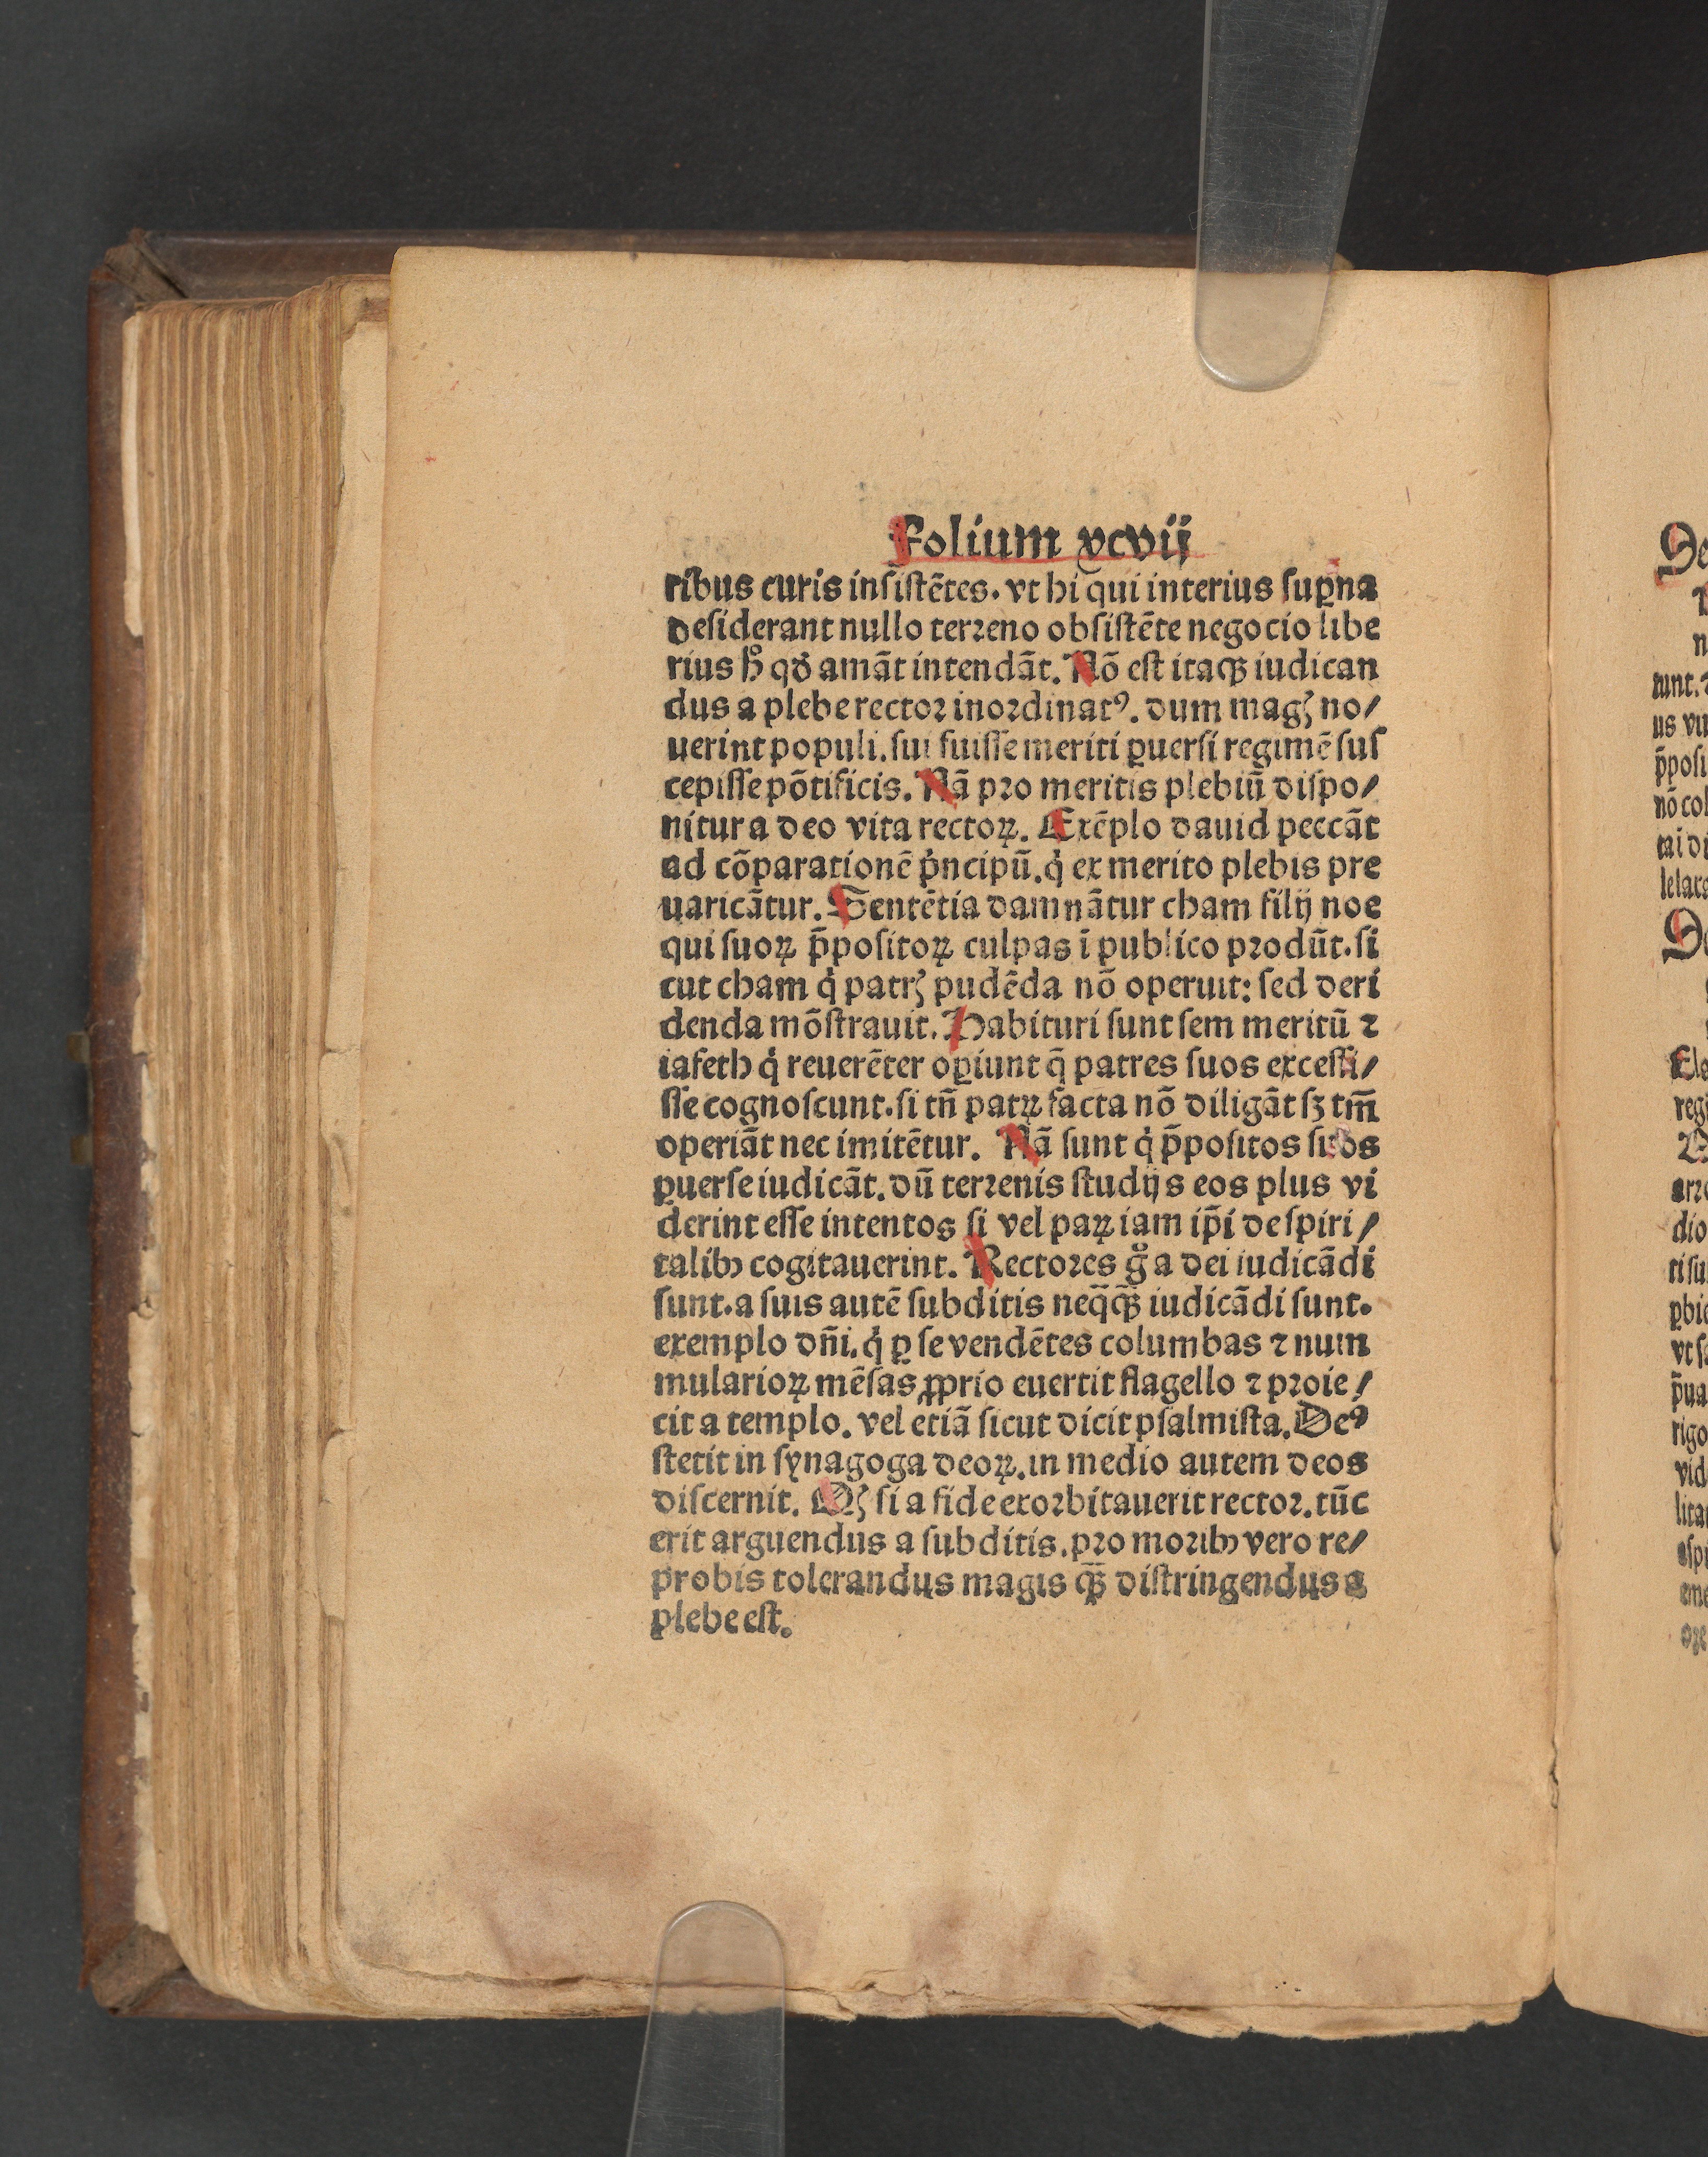 Folium xcvij
ribus curis insistētes. vt hi qui interius suꝑna
desiderant nullo terreno obsistēte negocio libe
rius hͦ qđ amāt intendāt. Nō est itaqꝫ iudican
dus a plebe rector inordinatꝰ. dum magꝭ no/
uerint populi. sui fuisse meriti ꝑuersi regimē sus
cepisse pōtificis. Nā pro meritis plebiū dispo/
nitur a deo vita rectoꝝ. Exēplo dauid peccāt
ad cōparationē pͥncipū. qͥ ex merito plebis pre
uaricātur. Sentētia damnātur cham filij noe
qui suoꝝ p̄positoꝝ culpas ī publico produ̅t. si
cut cham qͥ patrꝭ pudēda nō operuit: sed deri
denda mōstrauit. Habituri sunt sem meritū ⁊
iafeth qͥ reuerēter oꝑiunt q̄ patres suos excessi/
sse cognoscunt. si tn̄ patꝝ facta nō diligāt sꝫ tm̄
operiāt nec imitētur. Nā sunt qͥ p̄positos suos
ꝑuerse iudicāt. dū terrenis studijs eos plus vi
derint esse intentos si vel paꝝ iam ip̄i de spiri/
talibꝰ cogitauerint. Rectores gͦ a dei iudicādi
sunt. a suis autē subditis neq̄qꝫ̄ iudicādi sunt.
exemplo dn̄i. qͥ ꝑ se vendētes columbas ⁊ num
mularioꝝ mēsas ꝓprio euertit flagello ⁊ proie/
cit a templo. vel etiā sicut dicit psalmista. Deꝰ
stetit in synagoga deoꝝ. in medio autem deos
discernit. Qꝭ si a fide exorbitauerit rector. tūc
erit arguendus a subditis. pro moribꝰ vero re/
probis tolerandus magis qꝫ̄ distringendus a
plebe est.